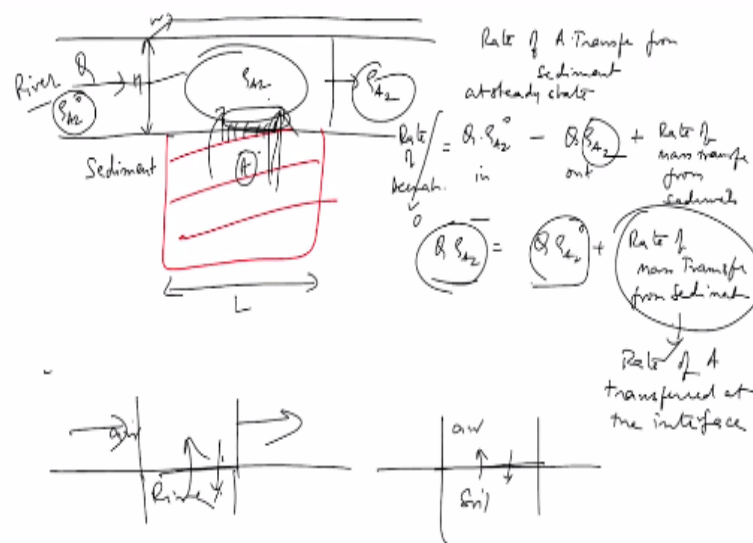 w
River Q
h
ρA2
ρA2
ρA2°
Sediment
A
L
Rate of A Transfe from
Sediment
at steady state
Rate
of
Accumul.
0
= Q. ρA2° - Q ρA2 + Rate of
in
out
mass transfer
from
sediments
Q ρA2 = Q ρA2° + Rate of
mass Transfer
from Sediment
Rate of A
transferred at
the interface
air
River
air
Soil